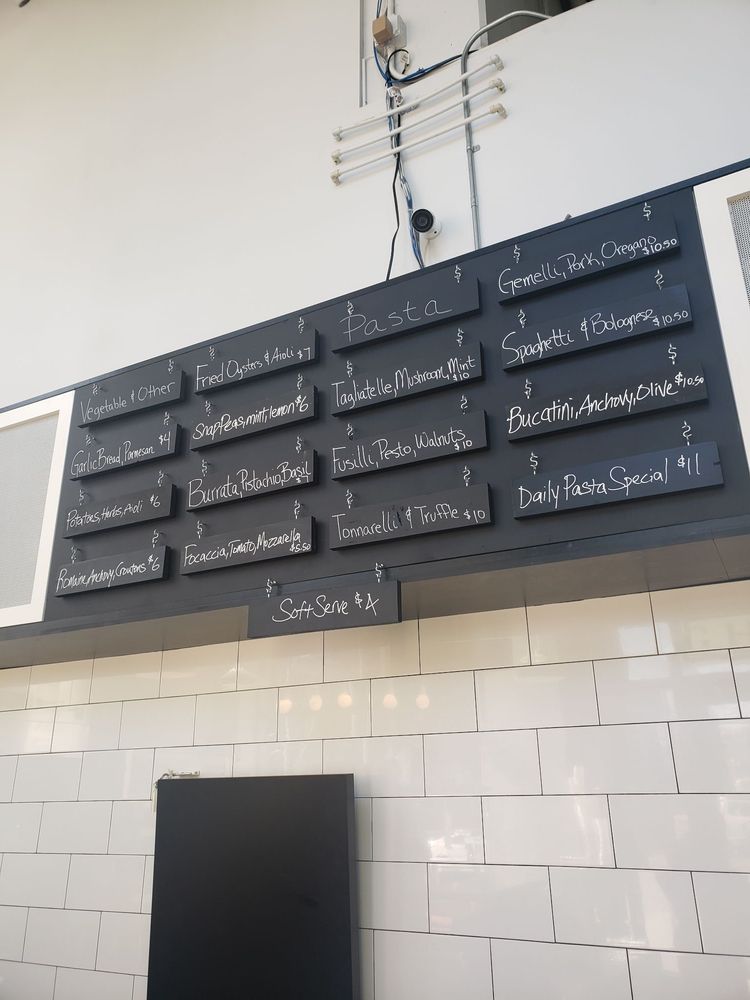 Vegetable & Other
Garlic Bread, Parmesan $4
Potatoes, Herbs, Aioli $6
Romaine, Anchovy, Croutons $6
Fried Oysters & Aioli $7
Snap Peas, mint, lemon $6
Burrata, Pistachio, Basil
Focaccia, Tomato, Mozzarella
$5.50
Pasta
Tagliatelle, Mushroom, Mint
$10
Fusilli, Pesto, Walnuts
$10
Tonnarelli & Truffle $10
Gemelli, Pork, Oregano
$10.50
Spaghetti & Bolognese $10.50
Bucatini, Anchovy, Olive $10.50
Daily Pasta Special $11
Soft Serve $4